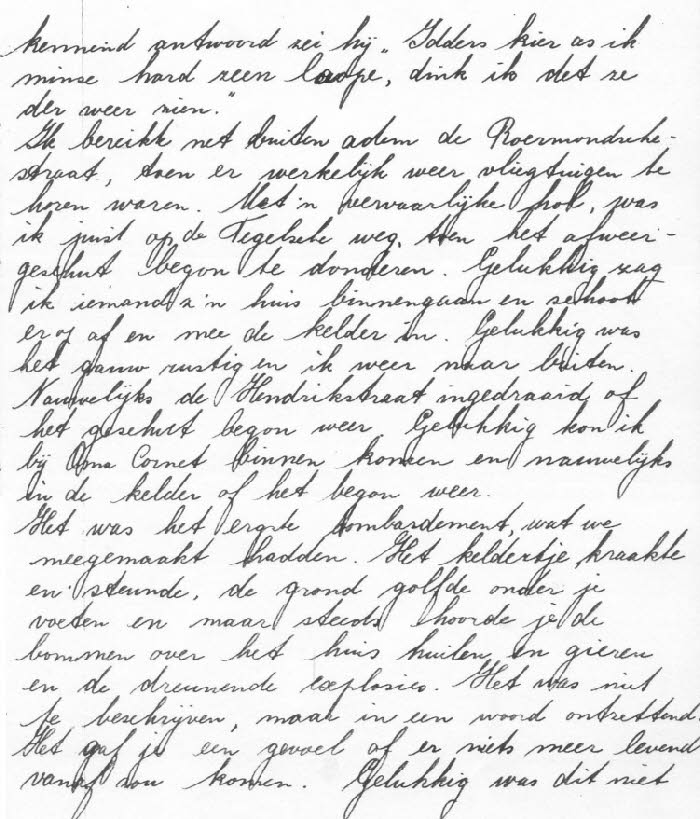 kennend antwoord zei hij „Idders kier as ik
minse hard zeen laope, dink ik det ze
der weer zien."
Ik bereikk net buiten adem de Roermondsche-
straat, toen er werkelijk weer vliegtuigen te
horen waren. Met 'n vervaarlijke hol, was
ik juist op de Tegelsche weg, toen het afweer-
geschut begon te donderen. Gelukkig zag
ik iemand z'n huis binnengaan en schoot
erop af en mee de kelder in. Gelukkig was
het gauw rustig en ik weer naar buiten.
Nauwelijks de Hendrikstraat ingedraaid of
het geschut begon weer Gelukkig kon ik
bij Oma Cornet binnen komen en nauwelijks
in de kelder of het begon weer.
Het was het ergste bombardement, wat we
meegemaakt hadden. Het keldertje kraakte
en steunde, de grond golfde onder je
voeten en maar steeds hoorde je de
bommen over het huis huilen en gieren
en de dreunende explosies. Het was niet
te beschrijven, maar in een woord ontzettend.
Het gaf je een gevoel of er niets meer levend
vanaf zou komen. Gelukkig was dit niet